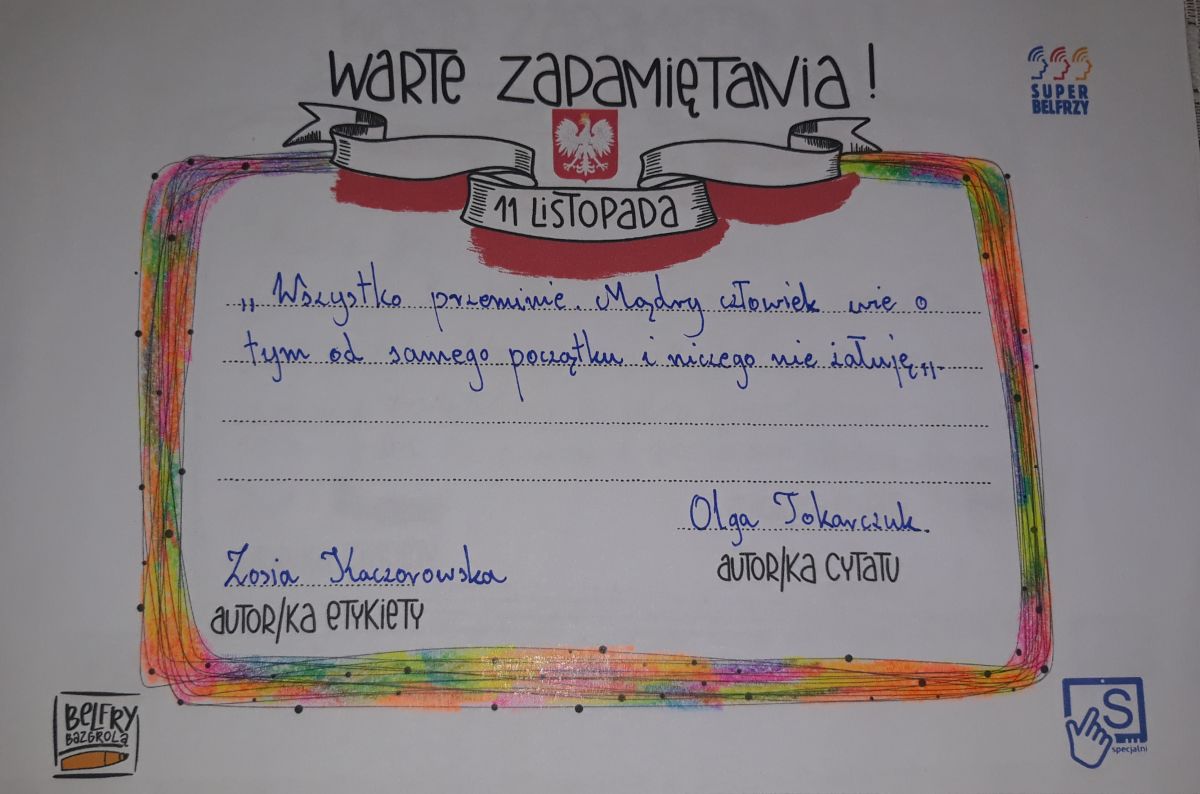 WARTE ZAPAMIĘTANIA!
SUPER
BELFRZY
11 LISTOPADA
„Wszystko przeminie. Mądry człowiek wie o
tym od samego początku i niczego nie żałuję„.
Olga Tokarczuk.
AUTOR/KA CYTATU
Zosia Kaczorowska
AUTOR/KA ETYKIETY
BELFRY
BAZGROLĄ
S
specjalni